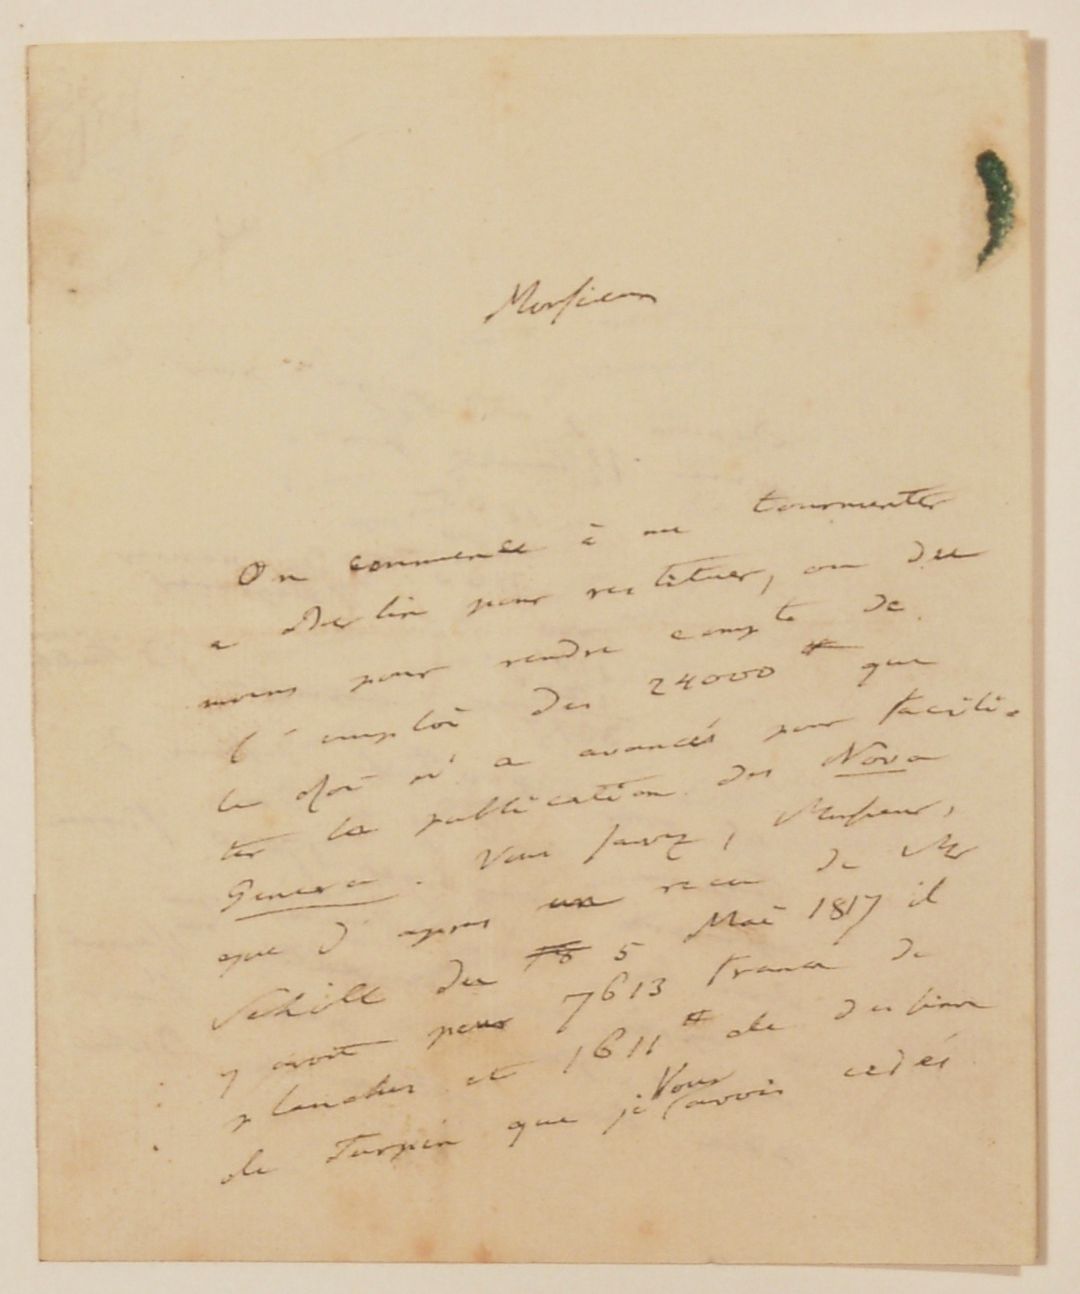 Monsieur
On commence à me tourmenter
a Berlin pour restituer, ou du
moins pour rendre compte de
l'emploi des 24000 # que
le Roi m'a avancés pour facili-
ter la publication des Nova
Genera. Vous savez, Monsieur,
que d'apres un recu de Mr
Schöll du 5 Mai 1817 il
y avoit pour 7613 francs de
planches et 1611 # de dessins
de Turpin que je Vous avois cedés